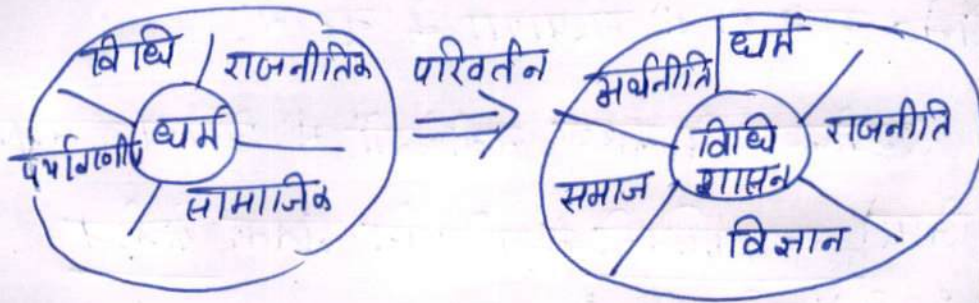 विधि
राजनीतिक
धर्म
पर्यावरणीय
सामाजिक
परिवर्तन
धर्म
अर्थनीति
राजनीति
विधि
शासन
समाज
विज्ञान